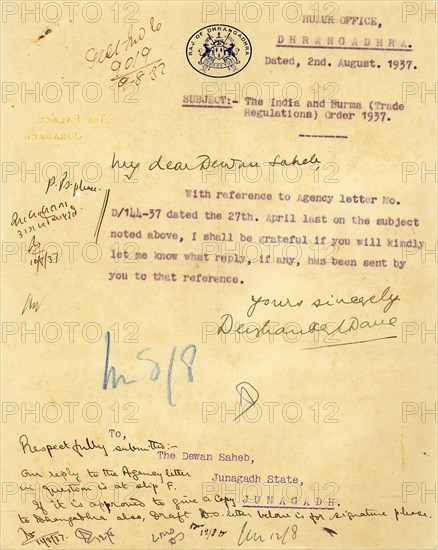 HUZUR OFFICE,
DHRANGADHRA.
RAJ OF DHRANGADHRA
Dated, 2nd. August. 1937.
9019
9-8-37
SUBJECT:- The India and Burma (Trade
Regulations) Order 1937.
THE PALACE
JUNAGADH
My dear Dewan Saheb,
With reference to Agency letter No.
D/144-37 dated the 27th. April last on the subject
noted above, I shall be grateful if you will kindly
let me know what reply, if any, has been sent by
you to that reference.
yours sincerely
10/8/37
5/8
To,
The Dewan Saheb,
Junagadh State,
JUNAGADH.
Respectfully submitted:-
Our reply to the Agency letter
in question is at slip F.
If it is approved to give a copy
to Dhrangadhra also, Draft D.o. letter below is for signature please.
12/8
PHOTO 12